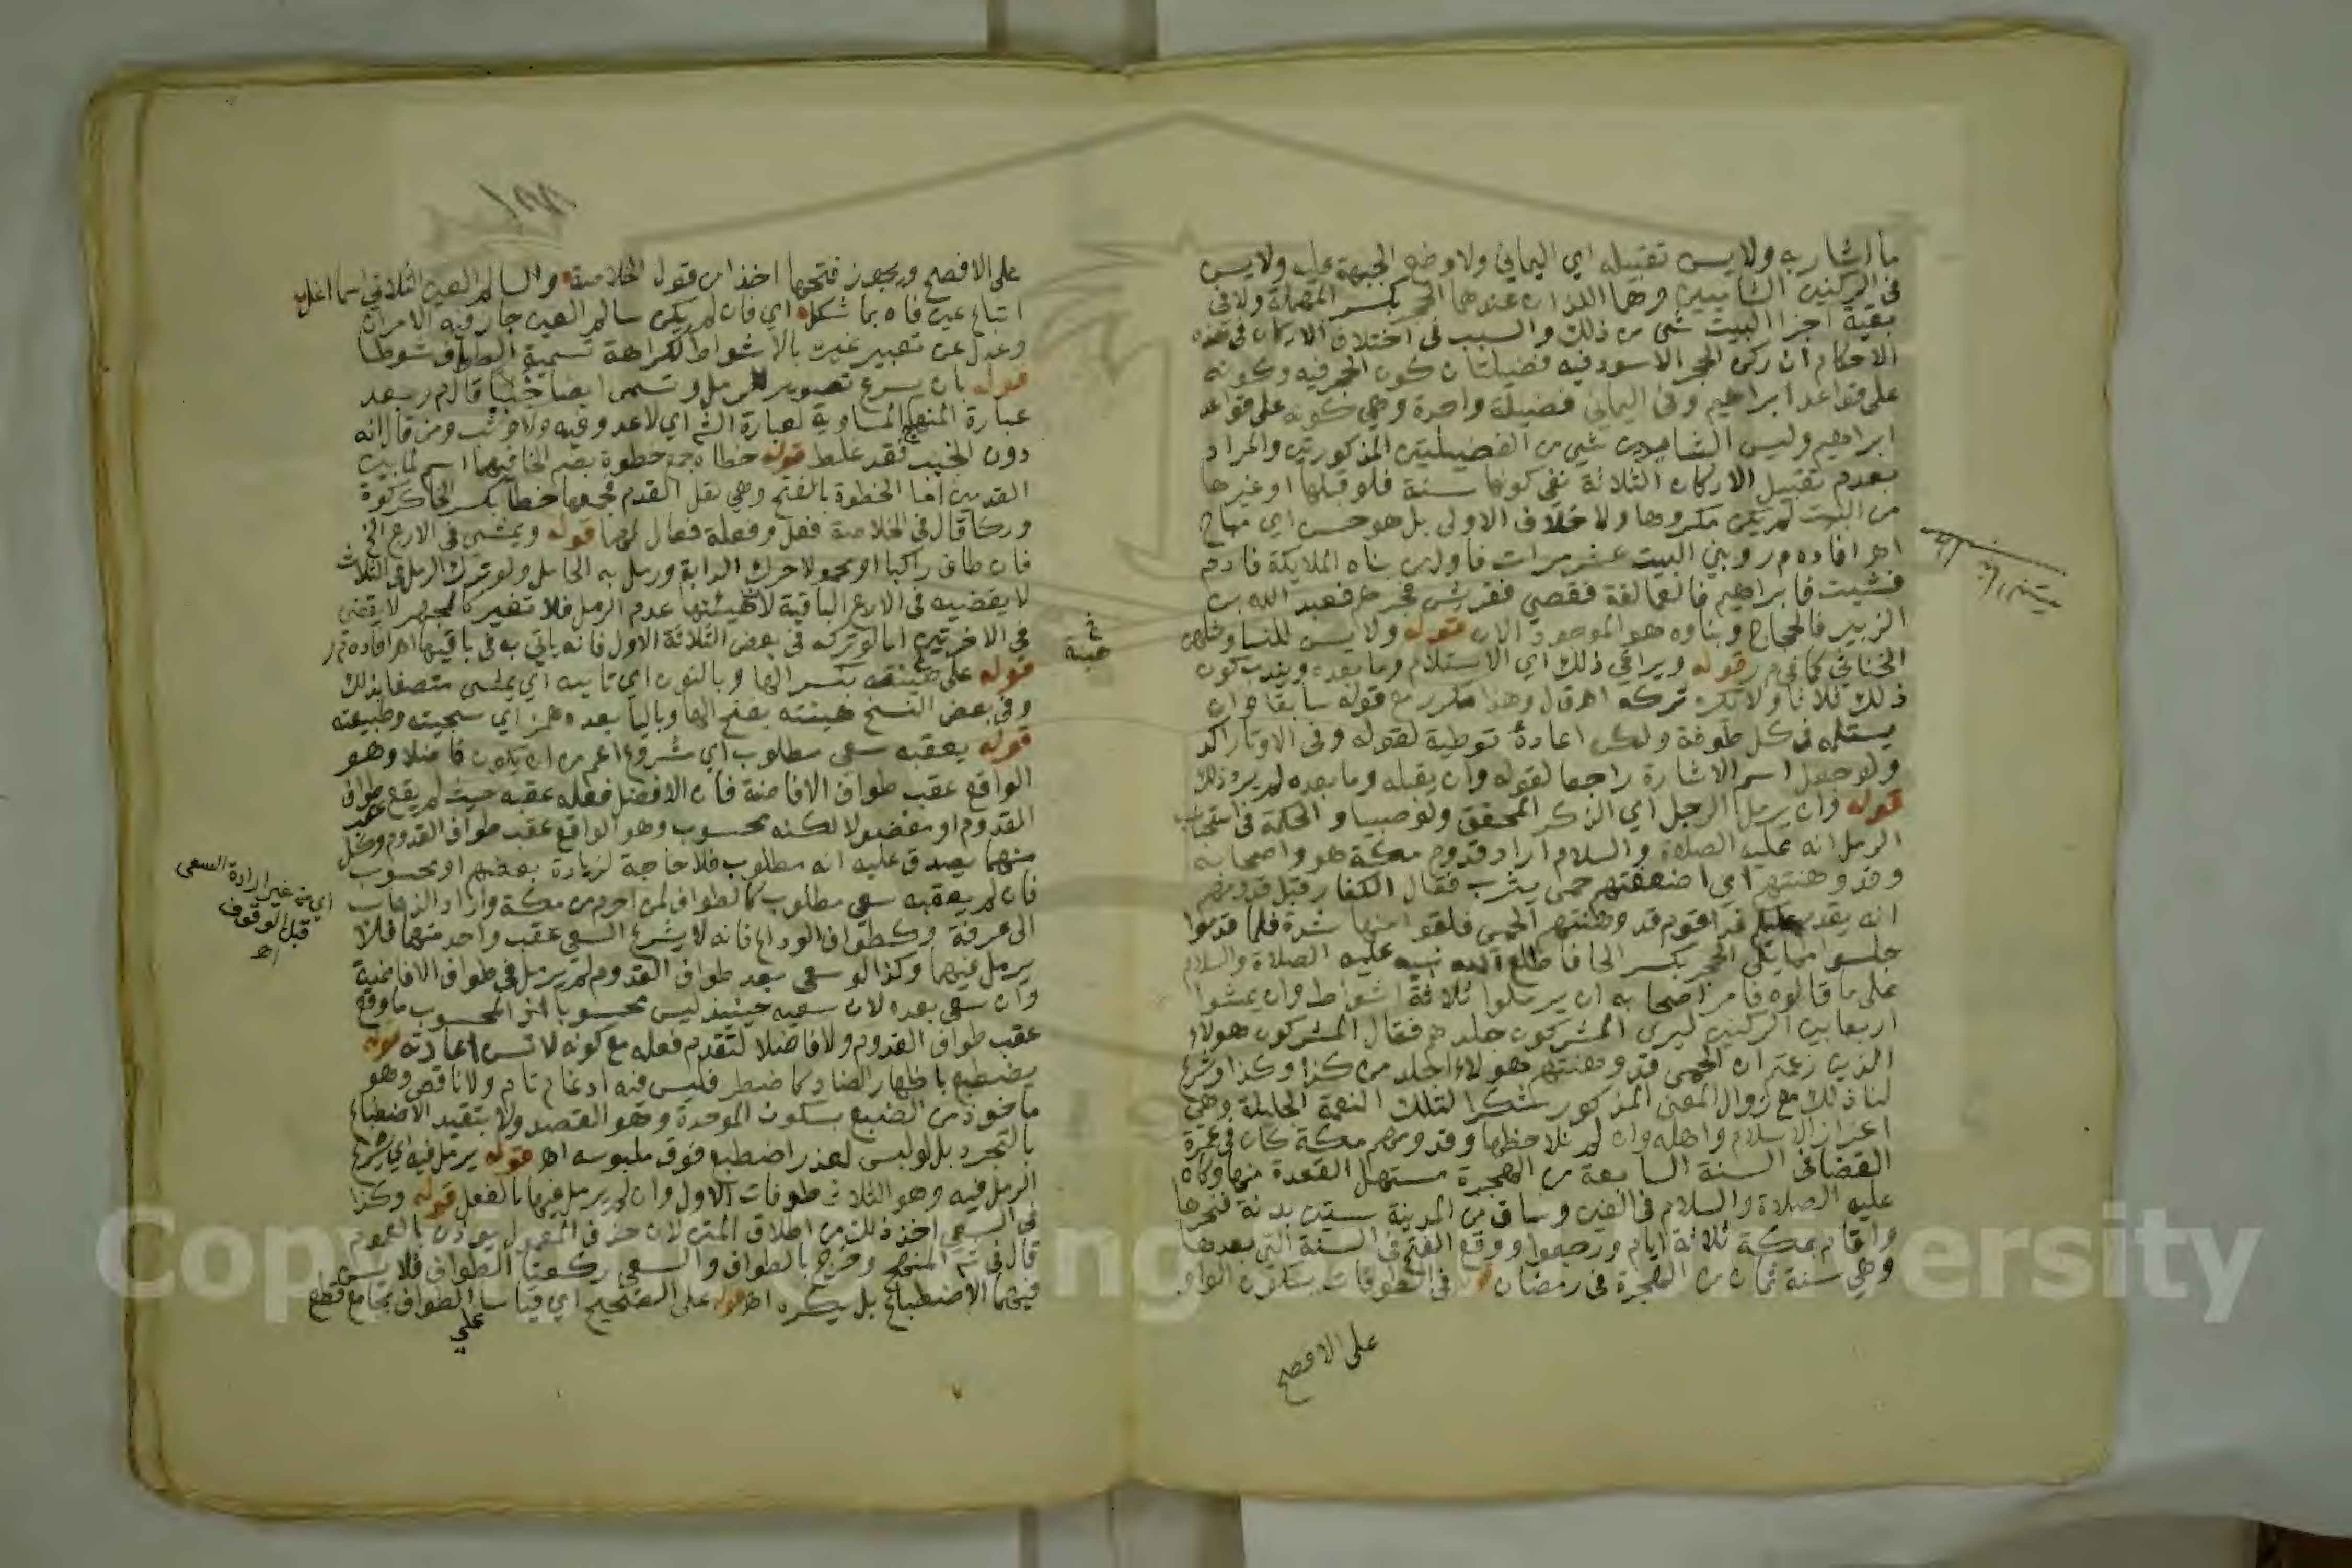 ما اشار به ولا يسن تقبيله اي اليماني ولا وضع الجبهة عليه ولا يسن
في الركنين الشاميين وهما اللذان عندهما الحجر بكسر المهملة ولا في
بقية اجزا البيت شي من ذلك والسبب في اختلاف الاركان في هذه
الاحكام ان ركن الحجر الاسود فيه فضيلتان كون الحجر فيه وكونه
على قواعد ابراهيم وفي اليماني فضيلة واحدة وهي كونه على قواعد
ابراهيم وليس للشاميين شي من الفضيلتين المذكورتين والمراد
بعدم تقبيل الاركان الثلاثة نفي كونها سنة فلو قبلها او غيرها
من البيت لم يكن مكروها ولا خلاف الاولى بل هو حسن اي مباح
اهـ افاده م ر وبني البيت عشر مرات فاول من بناه الملايكة فادم
فشيث فابراهيم فالعمالقة فقصي فقريش فجرهم فعبد الله بن
الزبير فالحجاج وبناوه هو الموجود الان قوله ولا يسن للنسا وخلفهن
الخناثى كما في م ر قوله ويراعي ذلك اي الاستلام وما بعده ويندب كون
ذلك ثلاثا ولا يكره تركه اهـ ق ل وهذا مكرر مع قوله سابقا وان
يستلمه في كل طوفة ولكن اعاده توطية لقوله وفي الاوتار اكد
ولو جعل اسم الاشارة راجعا لقوله وان يقبله وما بعده لم يرد ذلك
قوله وان يرمل الرجل اي الذكر المحقق ولو صبيا و الحكمة في استحباب
الرمل انه عليه الصلاة والسلام اراد قدوم مكة هو واصحابه
وقد وهنتهم اي اضعفتهم حمى يثرب فقال الكفار قبل قدومهم
انه يقدم عليكم غدا قوم قد وهنتهم الحمى فلقوا منها شدة فلما قدموا
جلسوا مما يلي الحجر بكسر الحا فاطلع الله نبيه عليه الصلاة والسلام
على ما قالوه فامر اصحابه ان يرملوا ثلاثة اشواط وان يمشوا
اربعا بين الركنين ليرى المشركون جلدهم فقال المشركون هولاء
الذين زعمتم ان الحمى قد وهنتهم هولاء اجلد من كذا وكذا وشرع
لنا ذلك مع زوال المعنى المذكور شكرا لتلك النعمة الجليلة وهي
اعزاز الاسلام واهله وان لم نلاحظها وقدومهم مكة كان في عمرة
القضا في السنة السابعة من الهجرة مستهل القعدة منها وكان
عليه الصلاة والسلام في الفين وساق من المدينة ستين بدنة فنحرها
واقام بمكة ثلاثة ايام ورجعوا ووقع الفتح في السنة التي بعدها
وهي سنة ثمان من الهجرة في رمضان قوله في الطوفات بسكون الواو
على الافصح
على الافصح ويجوز فتحها اخذا من قول الخلاصة والسالم العين الثلاثي اسما انل
اتباع عين فاه بما شكل اي فان لم يكن سالم العين جاز فيه الامران
وعدل عن تعبير غيره بالاشواط لكراهة تسمية الطواف شوطا
قوله بان يسرع تصوير للرمل وتسمى ايضا خببا قال م ر بعد
عبارة المنهاج المساوية لعبارة الش اي لا عدو فيه ولا وثب ومن قال انه
دون الخبب فقد غلط قوله خطاه جمع خطوة بضم الخا فيهما اسم لما بين
القدمين اما الخطوة بالفتح وهي نقل القدم فجمعها خطا بكسر الخا كركوة
وركا قال في الخلاصة فعل وفعلة فعال لهما قوله ويمشي في الاربع الخ
فان طاف راكبا او محمولا حرك الدابة ورمل به الحامل ولو ترك الرمل في الثلاث
لا يقضيه في الاربع الباقية لان هيئتها عدم الرمل فلا تغير كالجهر لا يقضى
في الاخرتين اما لو تركه في بعض الثلاثة الاول فانه ياتي به في باقيها اهـ افاده م ر
قوله على هينته بكسر الها وبالنون اي تانيه اي يمشي متصفا بذلك
خ
هينة
وفي بعض النسخ هيئته بفتح الها وباليا بعده همز اي سجيته وطبيعته
قوله يعقبه سعي مطلوب اي مشروع اعم من ان يكون فاضلا وهو
الواقع عقب طواف الافاضة فان الافضل فعله عقبه حيث لم يقع عقب طواف
القدوم او مفضولا لكنه محسوب وهو الواقع عقب طواف القدوم وكل
منهما يصدق عليه انه مطلوب فلا حاجة لزيادة بعضهم او محسوب
فان لم يعقبه سعي مطلوب كالطواف لمن احرم من مكة واراد الذهاب
اي من غير ارادة السعي
قبل الوقوف
اهـ
الى عرفة وكطواف الوداع فانه لا يشرع السعي عقب واحد منهما فلا
يرمل فيهما وكذا لو سعى بعد طواف القدوم لم يرمل في طواف الافاضة
وان سعى بعده لان سعيه حينئذ ليس محسوبا اذ المحسوب ما وقع
عقب طواف القدوم ولا فاضلا لتقدم فعله مع كونه لا تسن اعادته قوله
يضطبع باظهار الضاد كاضطر فليس فيه ادغام تام ولا ناقص وهو
ماخوذ من الضبع بسكون الموحدة وهو العضد ولا يتقيد الاضطباع
بالتجرد بل لو لبس لعذر اضطبع فوق ملبوسه اهـ قوله يرمل فيه اي يشرع
الرمل فيه وهو الثلاث طوفات الاول وان لم يرمل فيها بالفعل قوله وكذا
في السعي اخذ ذلك من اطلاق المتن لان حذف المعمول يوذن بالعموم
قال في ش المنهج وخرج بالطواف والسعي ركعتا الطواف فلا يسن
فيهما الاضطباع بل يكره اهـ قوله على الصحيح اي قياسا للطواف بجامع قطع
على